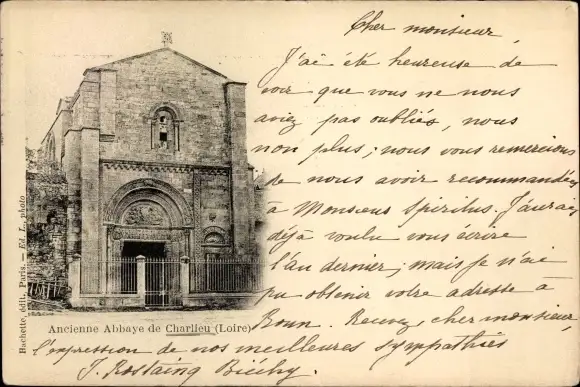 Cher monsieur,
J'ai été heureuse de
voir que vous ne nous
aviez pas oubliés, nous
non plus; nous vous remercions
de nous avoir recommandés
à Monsieur Spiritus. J'aurais
déjà voulu vous écrire
l'an dernier; mais je n'ai
pu obtenir votre adresse à
Bonn. Recevez cher monsieur,
l'expression de nos meilleures sympathies
J. Rostaing
Ancienne Abbaye de Charlieu (Loire)
Hachette, édit., Paris. — Ed. L., photo